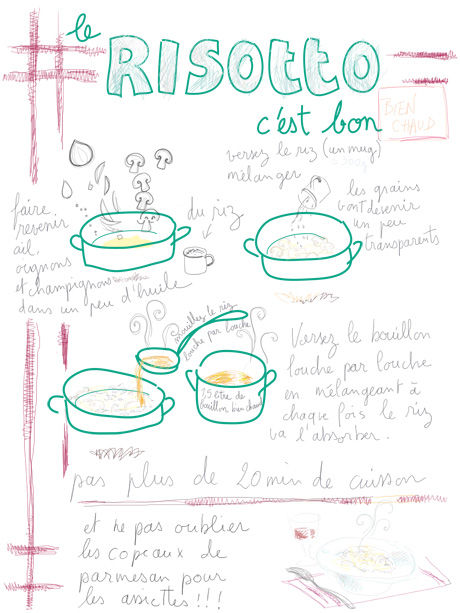 le
RISOTTO
c'est bon
BIEN
CHAUD
versez le riz (un mug)
mélanger
faire
revenir
ail,
oignons
et champignons
dans un peu d'huile
du riz
les grains
vont devenir
un peu
transparents
mouillez le riz
louche par louche
1,5 litre de
bouillon bien chaud
Versez le bouillon
louche par louche
en mélangeant à
chaque fois le riz
va l'absorber.
pas plus de 20 min de cuisson
et ne pas oublier
les copeaux de
parmesan pour
les assiettes !!!